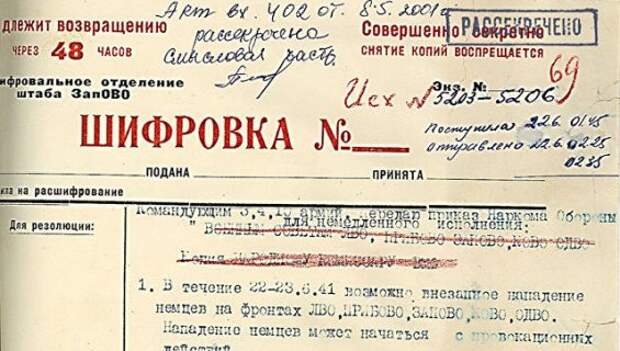 Акт вх. 402 от 8.5.2001г
рассекречена
смысловая
РАССЕКРЕЧЕНО
длежит возвращению
ЧЕРЕЗ 48 ЧАСОВ
Совершенно секретно
СНЯТИЕ КОПИЙ ВОСПРЕЩАЕТСЯ
69
ифровальное отделение
штаба ЗапОВО
Экз. №
Исх № 5203-5206
Поступила 22.6. 01.45
отправлено 22.6 02.25
02.35
ШИФРОВКА №
ПОДАНА
ПРИНЯТА
на расшифрование
Для резолюции:
Командующим 3,4,10 армий. Передаю приказ Наркома Обороны
для немедленного исполнения:
ЛВО, ПРИБОВО ЗАПОВО, КОВО ОДВО
Копия
1. В течение 22-23.6.41 возможно внезапное нападение
немцев на фронтах ЛВО, ПРИБОВО, ЗАПОВО, КОВО, ОДВО.
Нападение немцев может начаться с провокационных
действий